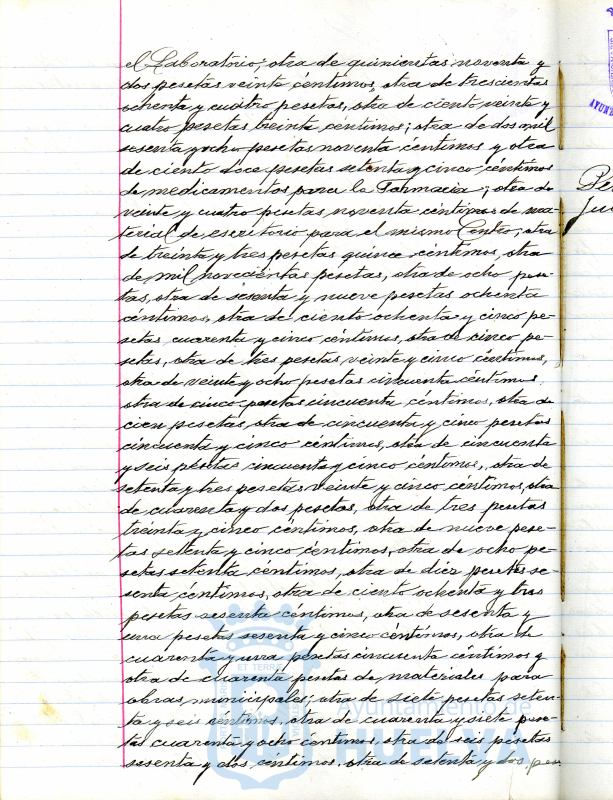 el Laboratorio; otra de quinientas noventa y
dos pesetas veinte céntimos, otra de trescientas
ochenta y cuatro pesetas, otra de ciento veinte y
cuatro pesetas treinta céntimos; otra de dos mil
sesenta y ocho pesetas noventa céntimos y otra
de ciento doce pesetas setenta y cinco céntimos
de medicamentos para la Farmacia; otra de
veinte y cuatro pesetas noventa céntimos de ma-
terial de escritorio para el mismo Centro; otra
de treinta y tres pesetas quince céntimos, otra
de mil novecientas pesetas, otra de ocho pese-
tas, otra de sesenta y nueve pesetas ochenta
céntimos, otra de ciento ochenta y cinco pe-
setas cuarenta y cinco céntimos, otra de cinco pe-
setas, otra de tres pesetas veinte y cinco céntimos,
otra de veinte y ocho pesetas cincuenta céntimos,
otra de cinco pesetas cincuenta céntimos, otra de
cien pesetas, otra de cincuenta y cinco pesetas
cincuenta y cinco céntimos, otra de cincuenta
y seis pesetas cincuenta y cinco céntimos, otra de
setenta y tres pesetas veinte y cinco céntimos, otra
de cuarenta y dos pesetas, otra de tres pesetas
treinta y cinco céntimos, otra de nueve pese-
tas setenta y cinco céntimos, otra de ocho pe-
setas setenta céntimos, otra de diez pesetas se-
senta céntimos, otra de ciento ochenta y tres
pesetas sesenta céntimos, otra de sesenta y
una pesetas sesenta y cinco céntimos, otra de
cuarenta y una pesetas cincuenta céntimos y
otra de cuarenta pesetas de materiales para
obras municipales; otra de siete pesetas seten-
ta y seis céntimos, otra de cuarenta y siete pese-
tas cuarenta y ocho céntimos, otra de seis pesetas
sesenta y dos céntimos, otra de setenta y dos pese
Ayuntamiento de
HUELVA